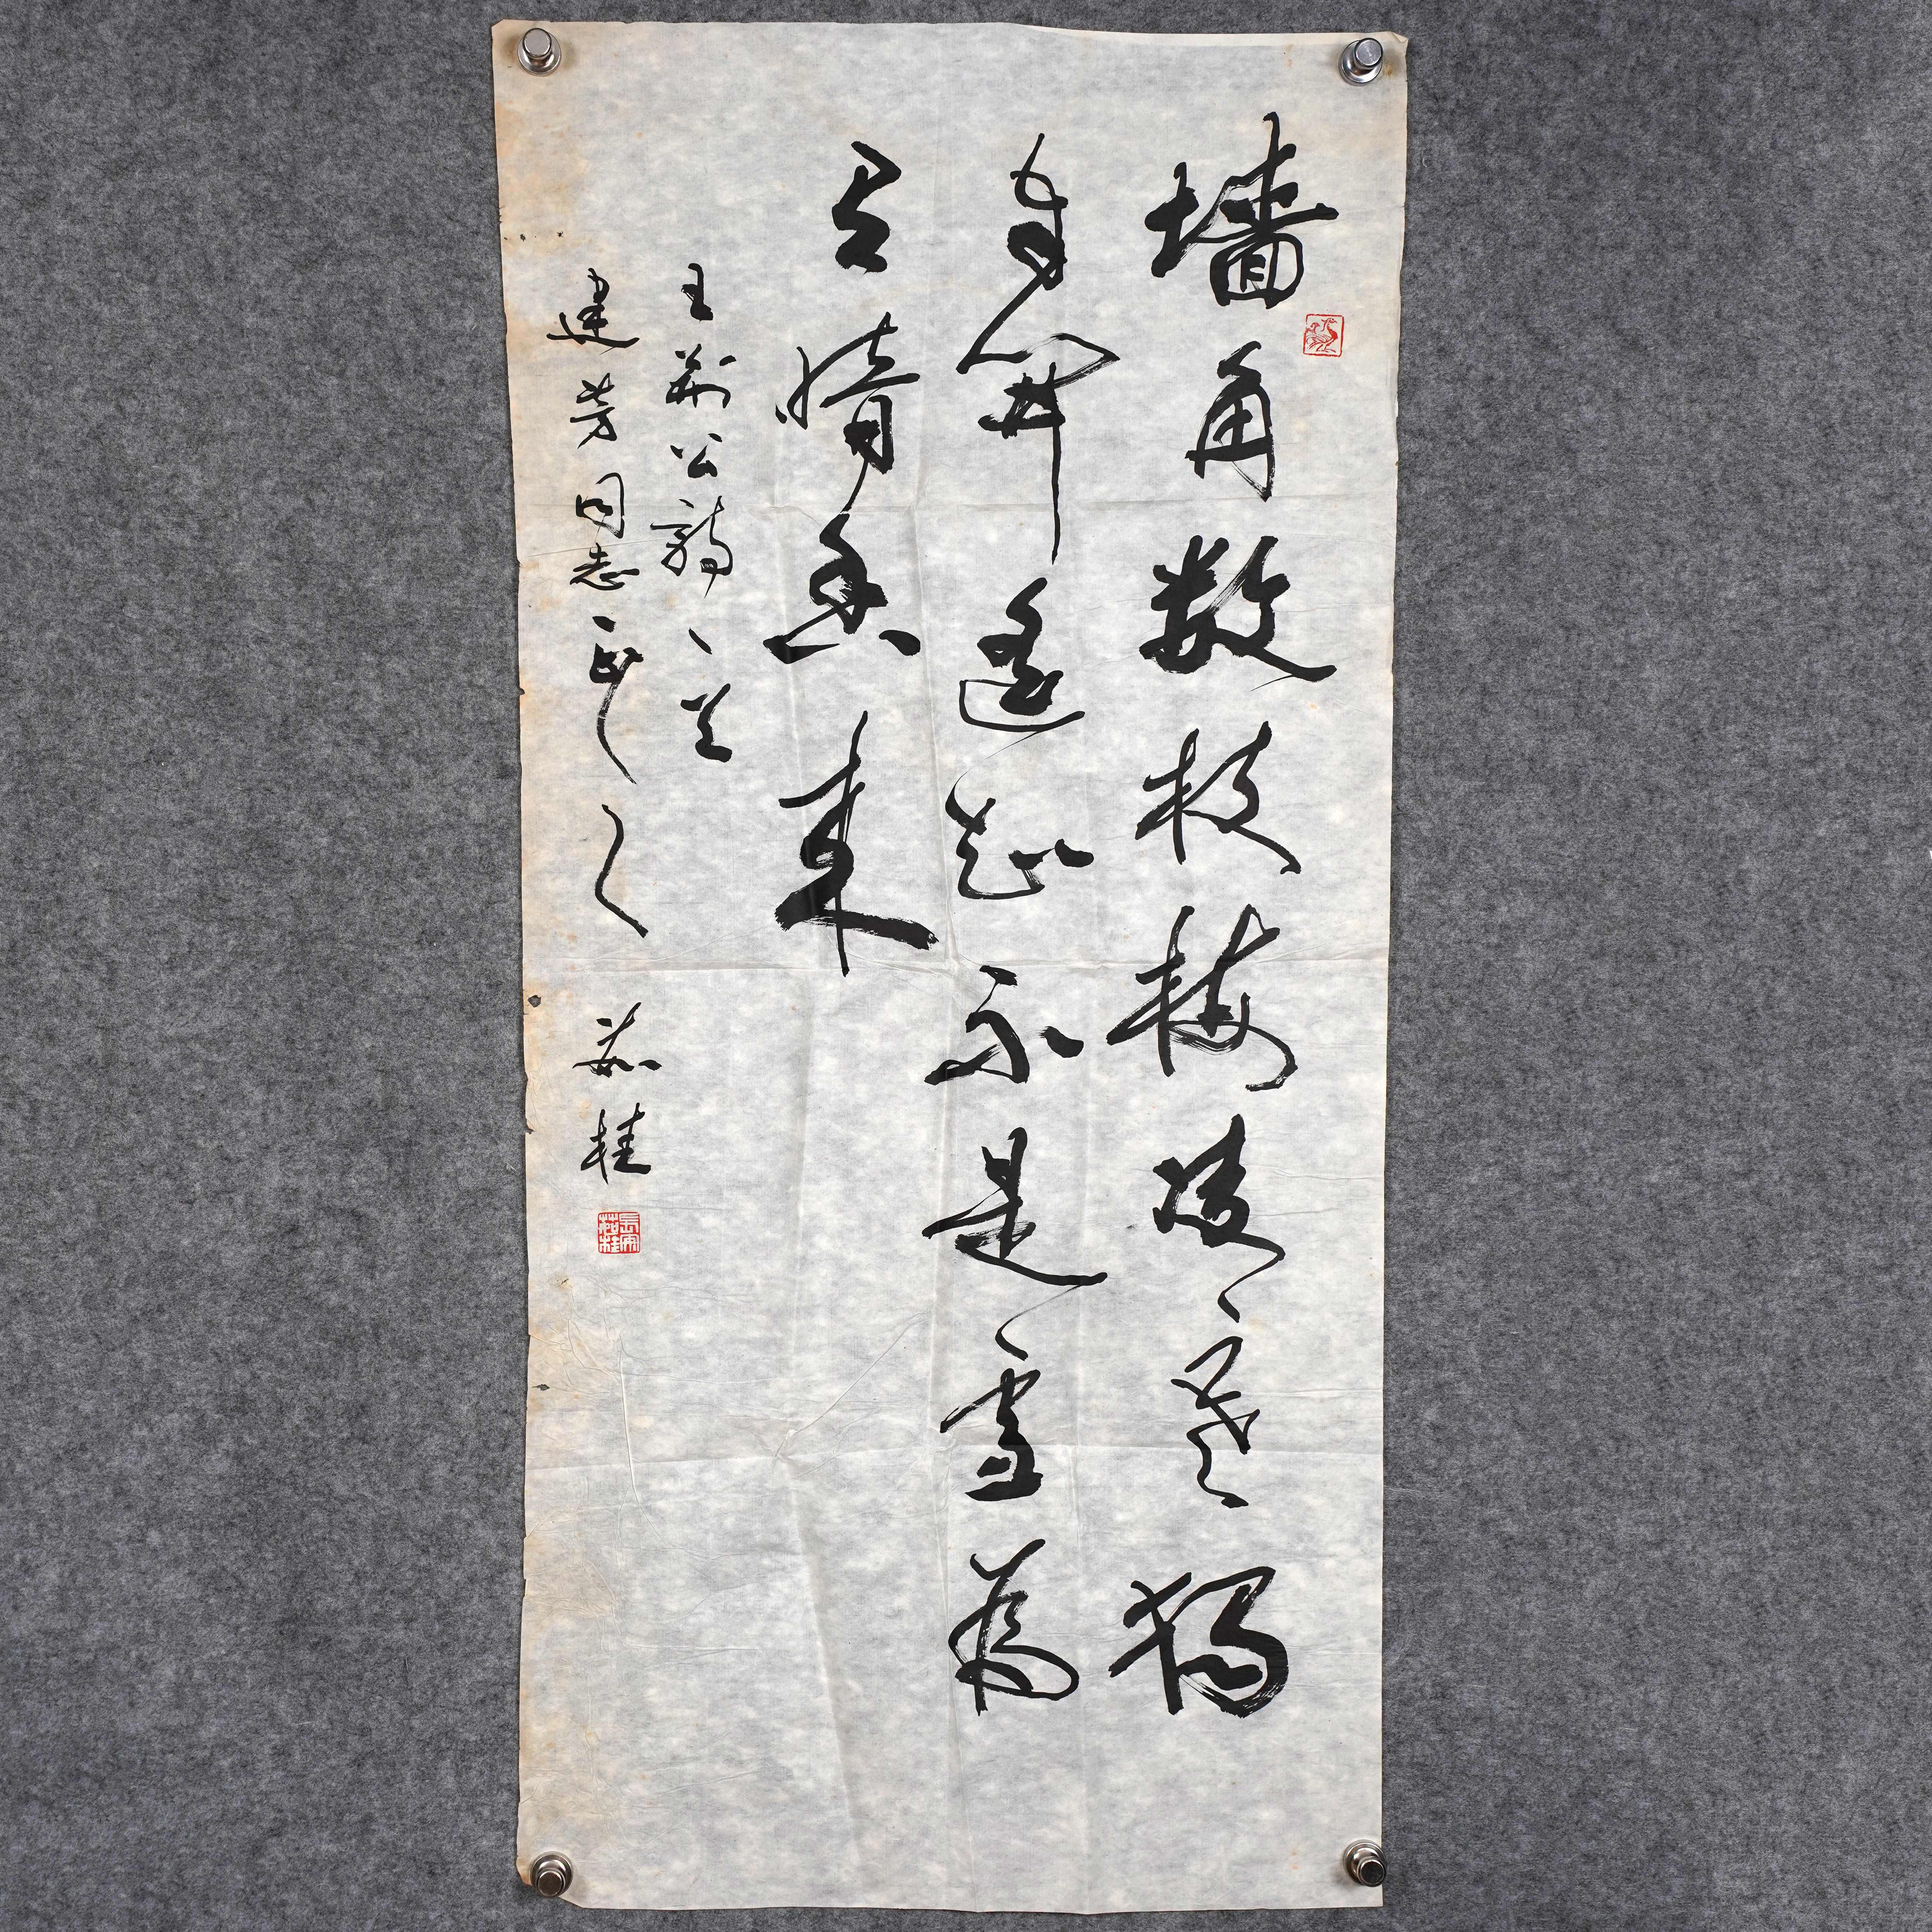 墙角数枝梅凌寒独
自開遥知不是雪為
有暗香来
王荆公詩一首
建芳同志正之 茹桂